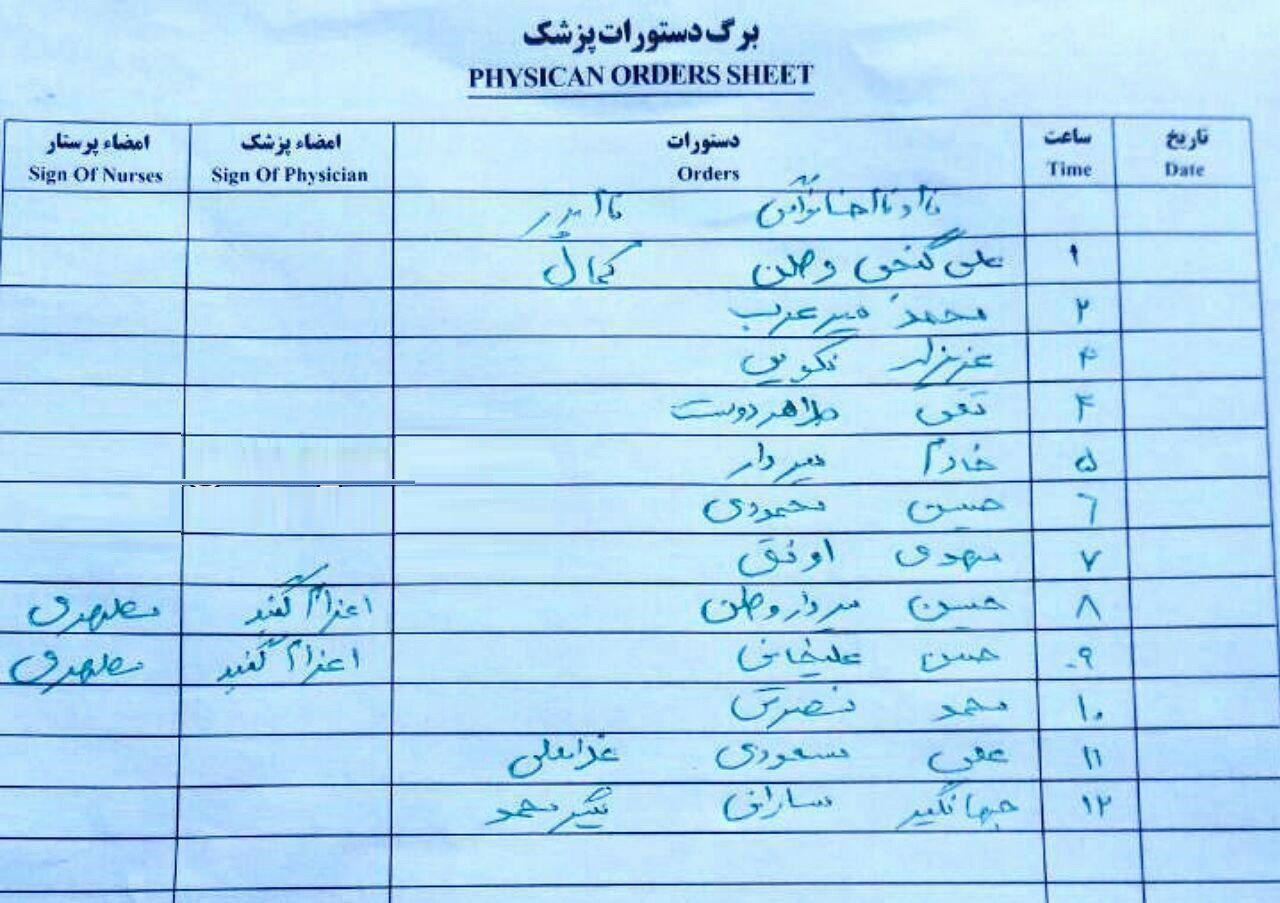 برگ دستورات پزشک
PHYSICAN ORDERS SHEET
تاریخ ساعت دستورات امضاء پزشک امضاء پرستار
Date Time Orders Sign Of Physician Sign Of Nurses
نام و نام خانوادگی نام پدر
۱ علی گنجی وطن کمال
۲ محمد میر عرب
۳ نکویی
۴ تقی طاهر دوست
۵ خادم سردار
۶ حسین محمودی
۷ مهدی اوثق
۸ حسین سردار وطن اعزام کنید
۹ حسن علیخانی اعزام کنید
۱۰ محمد نصرتی
۱۱ مسعودی غلامعلی
۱۲ جهانگیر سارانی